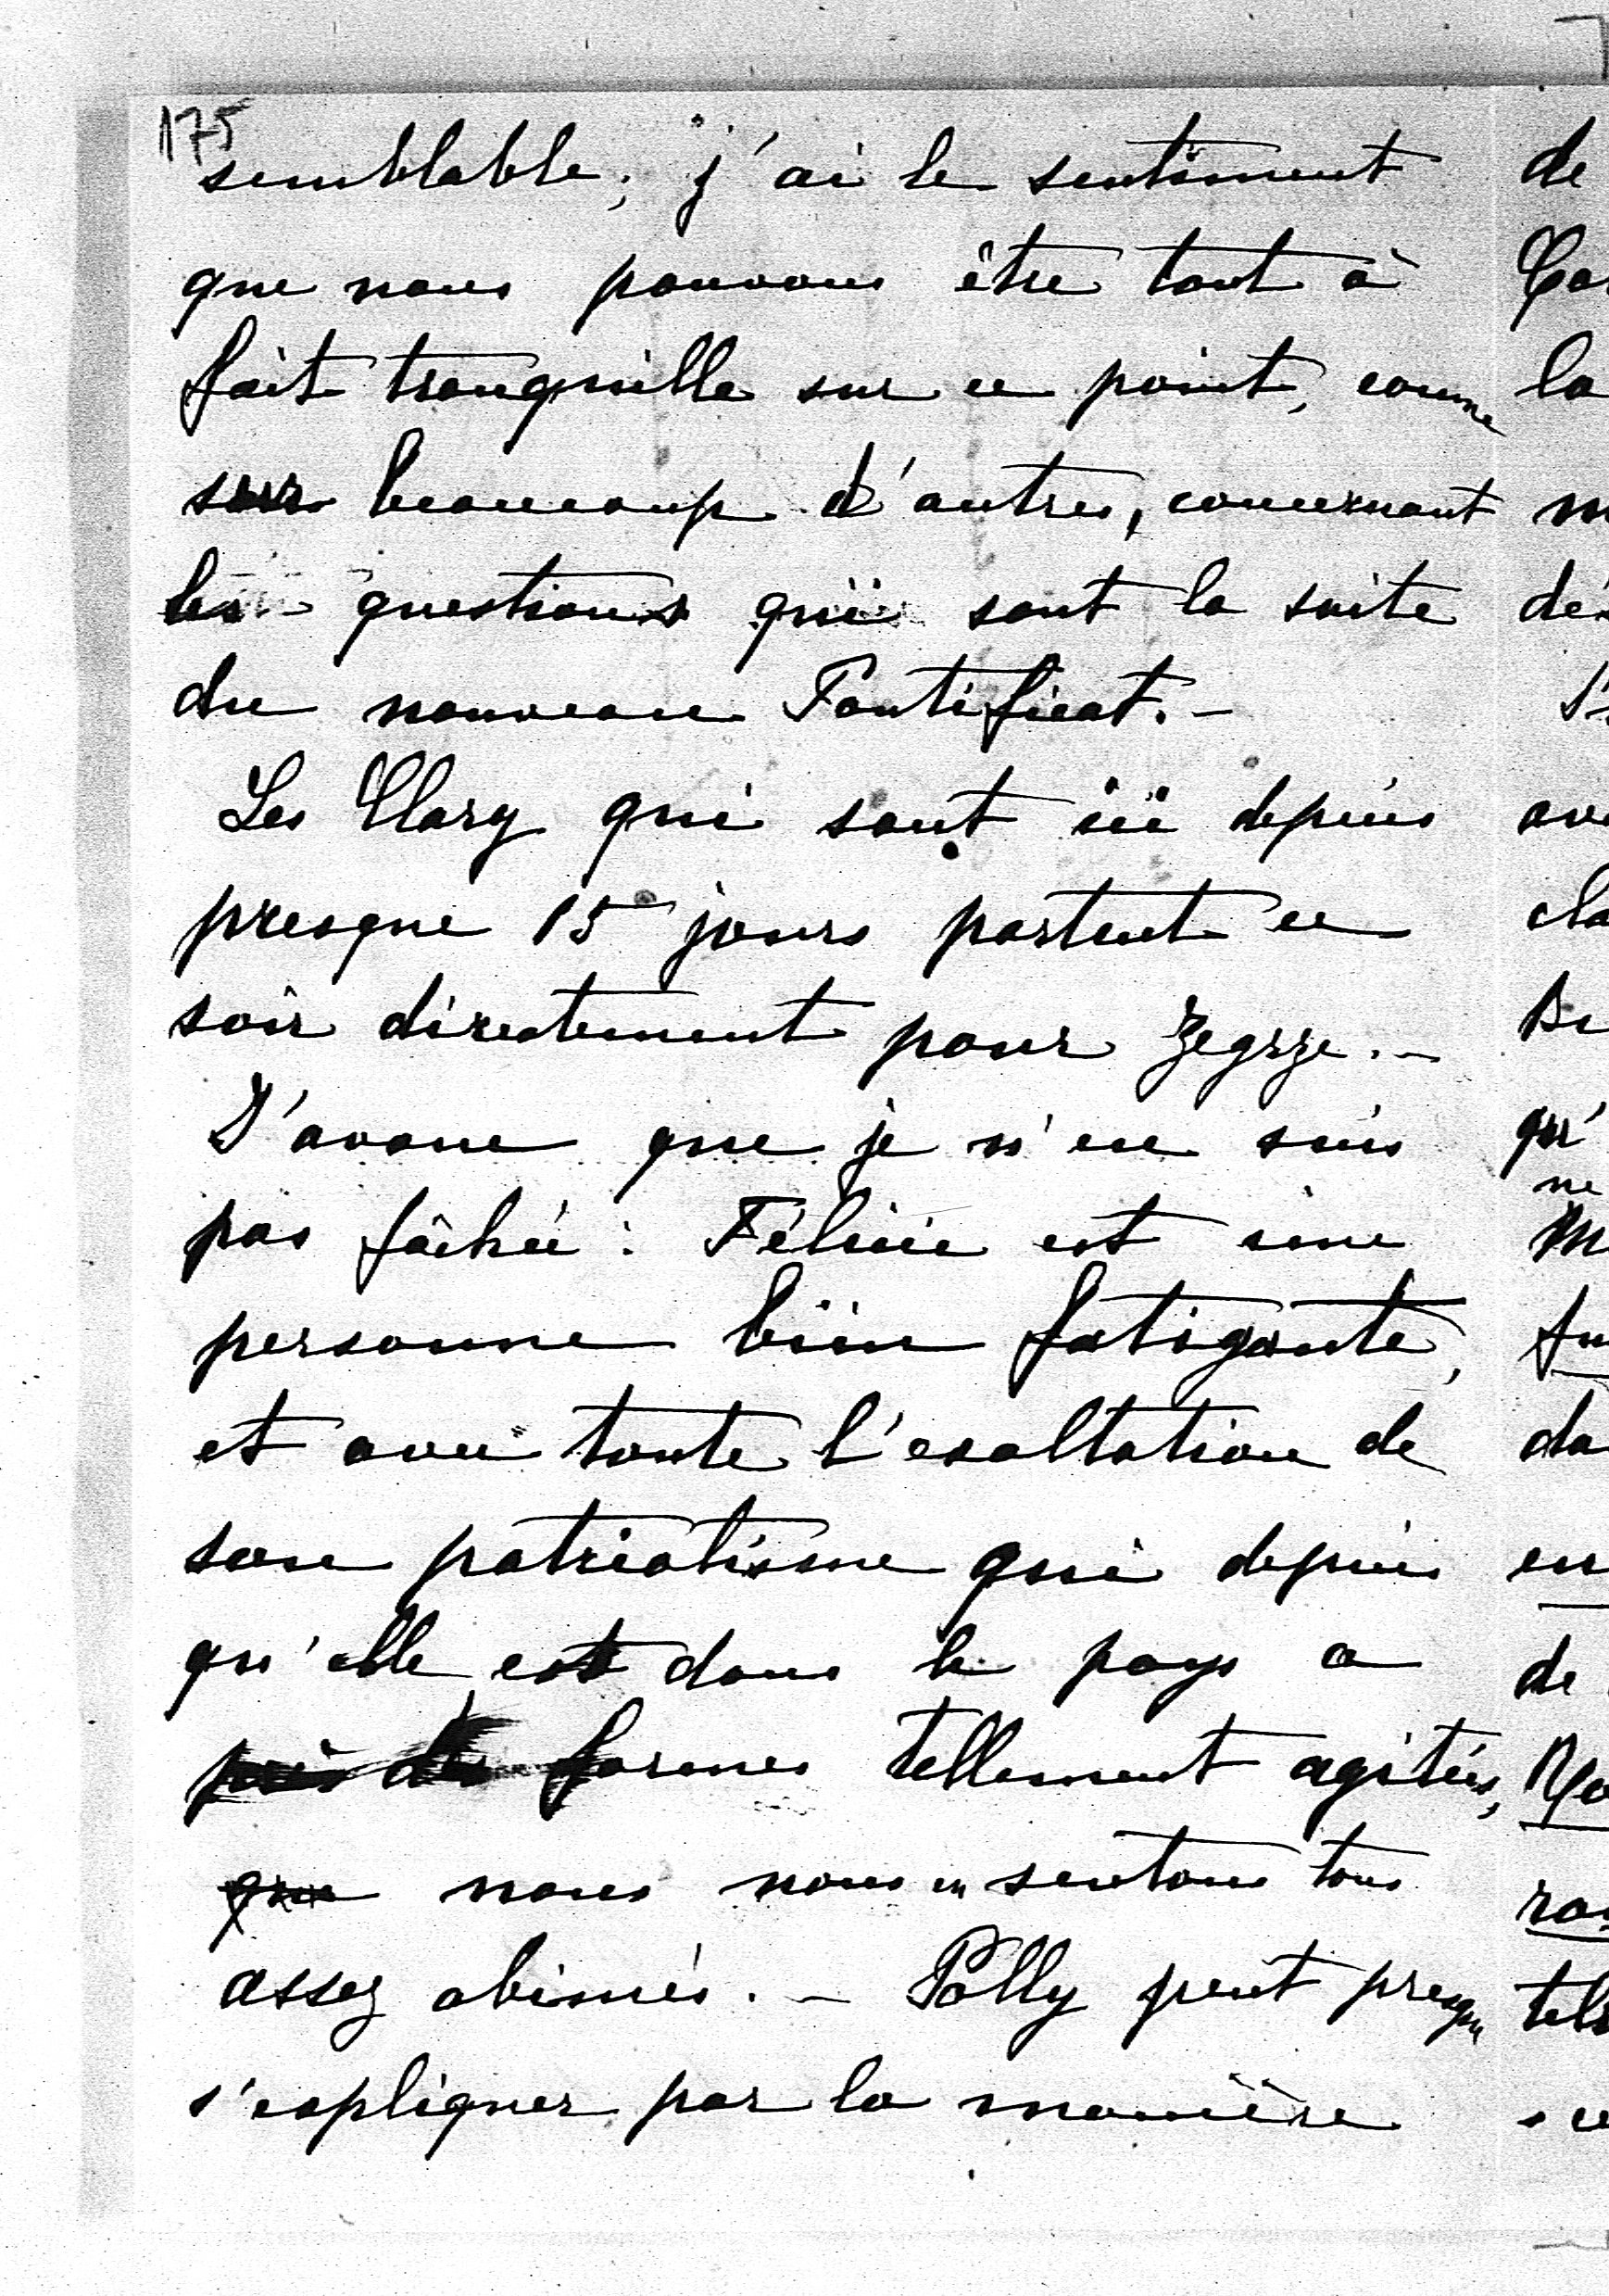 175
semblable; j'ai le sentiment
que nous pouvons être tout à
fait tranquille sur ce point, comme
sur beaucoup d'autres, concernant
les questions qui sont la suite
du nouveau Pontificat. -
Les Clary qui sont ici depuis
presque 15 jours partent ce
soir directement pour Zegrze. -
J'avoue que je n'en suis
pas fâchée : Félicie est une
personne bien fatigante,
et avec toute l'exaltation de
son patriotisme qui depuis
qu'elle est dans le pays a
pris des formes tellement agitées,
que nous nous en sentons tous
assez abimés. - Polly peut presque
s'expliquer par la manière